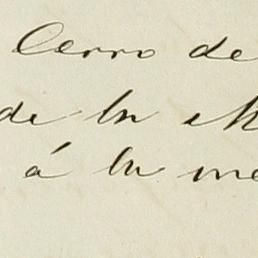 Cerro de
de la M
á la me